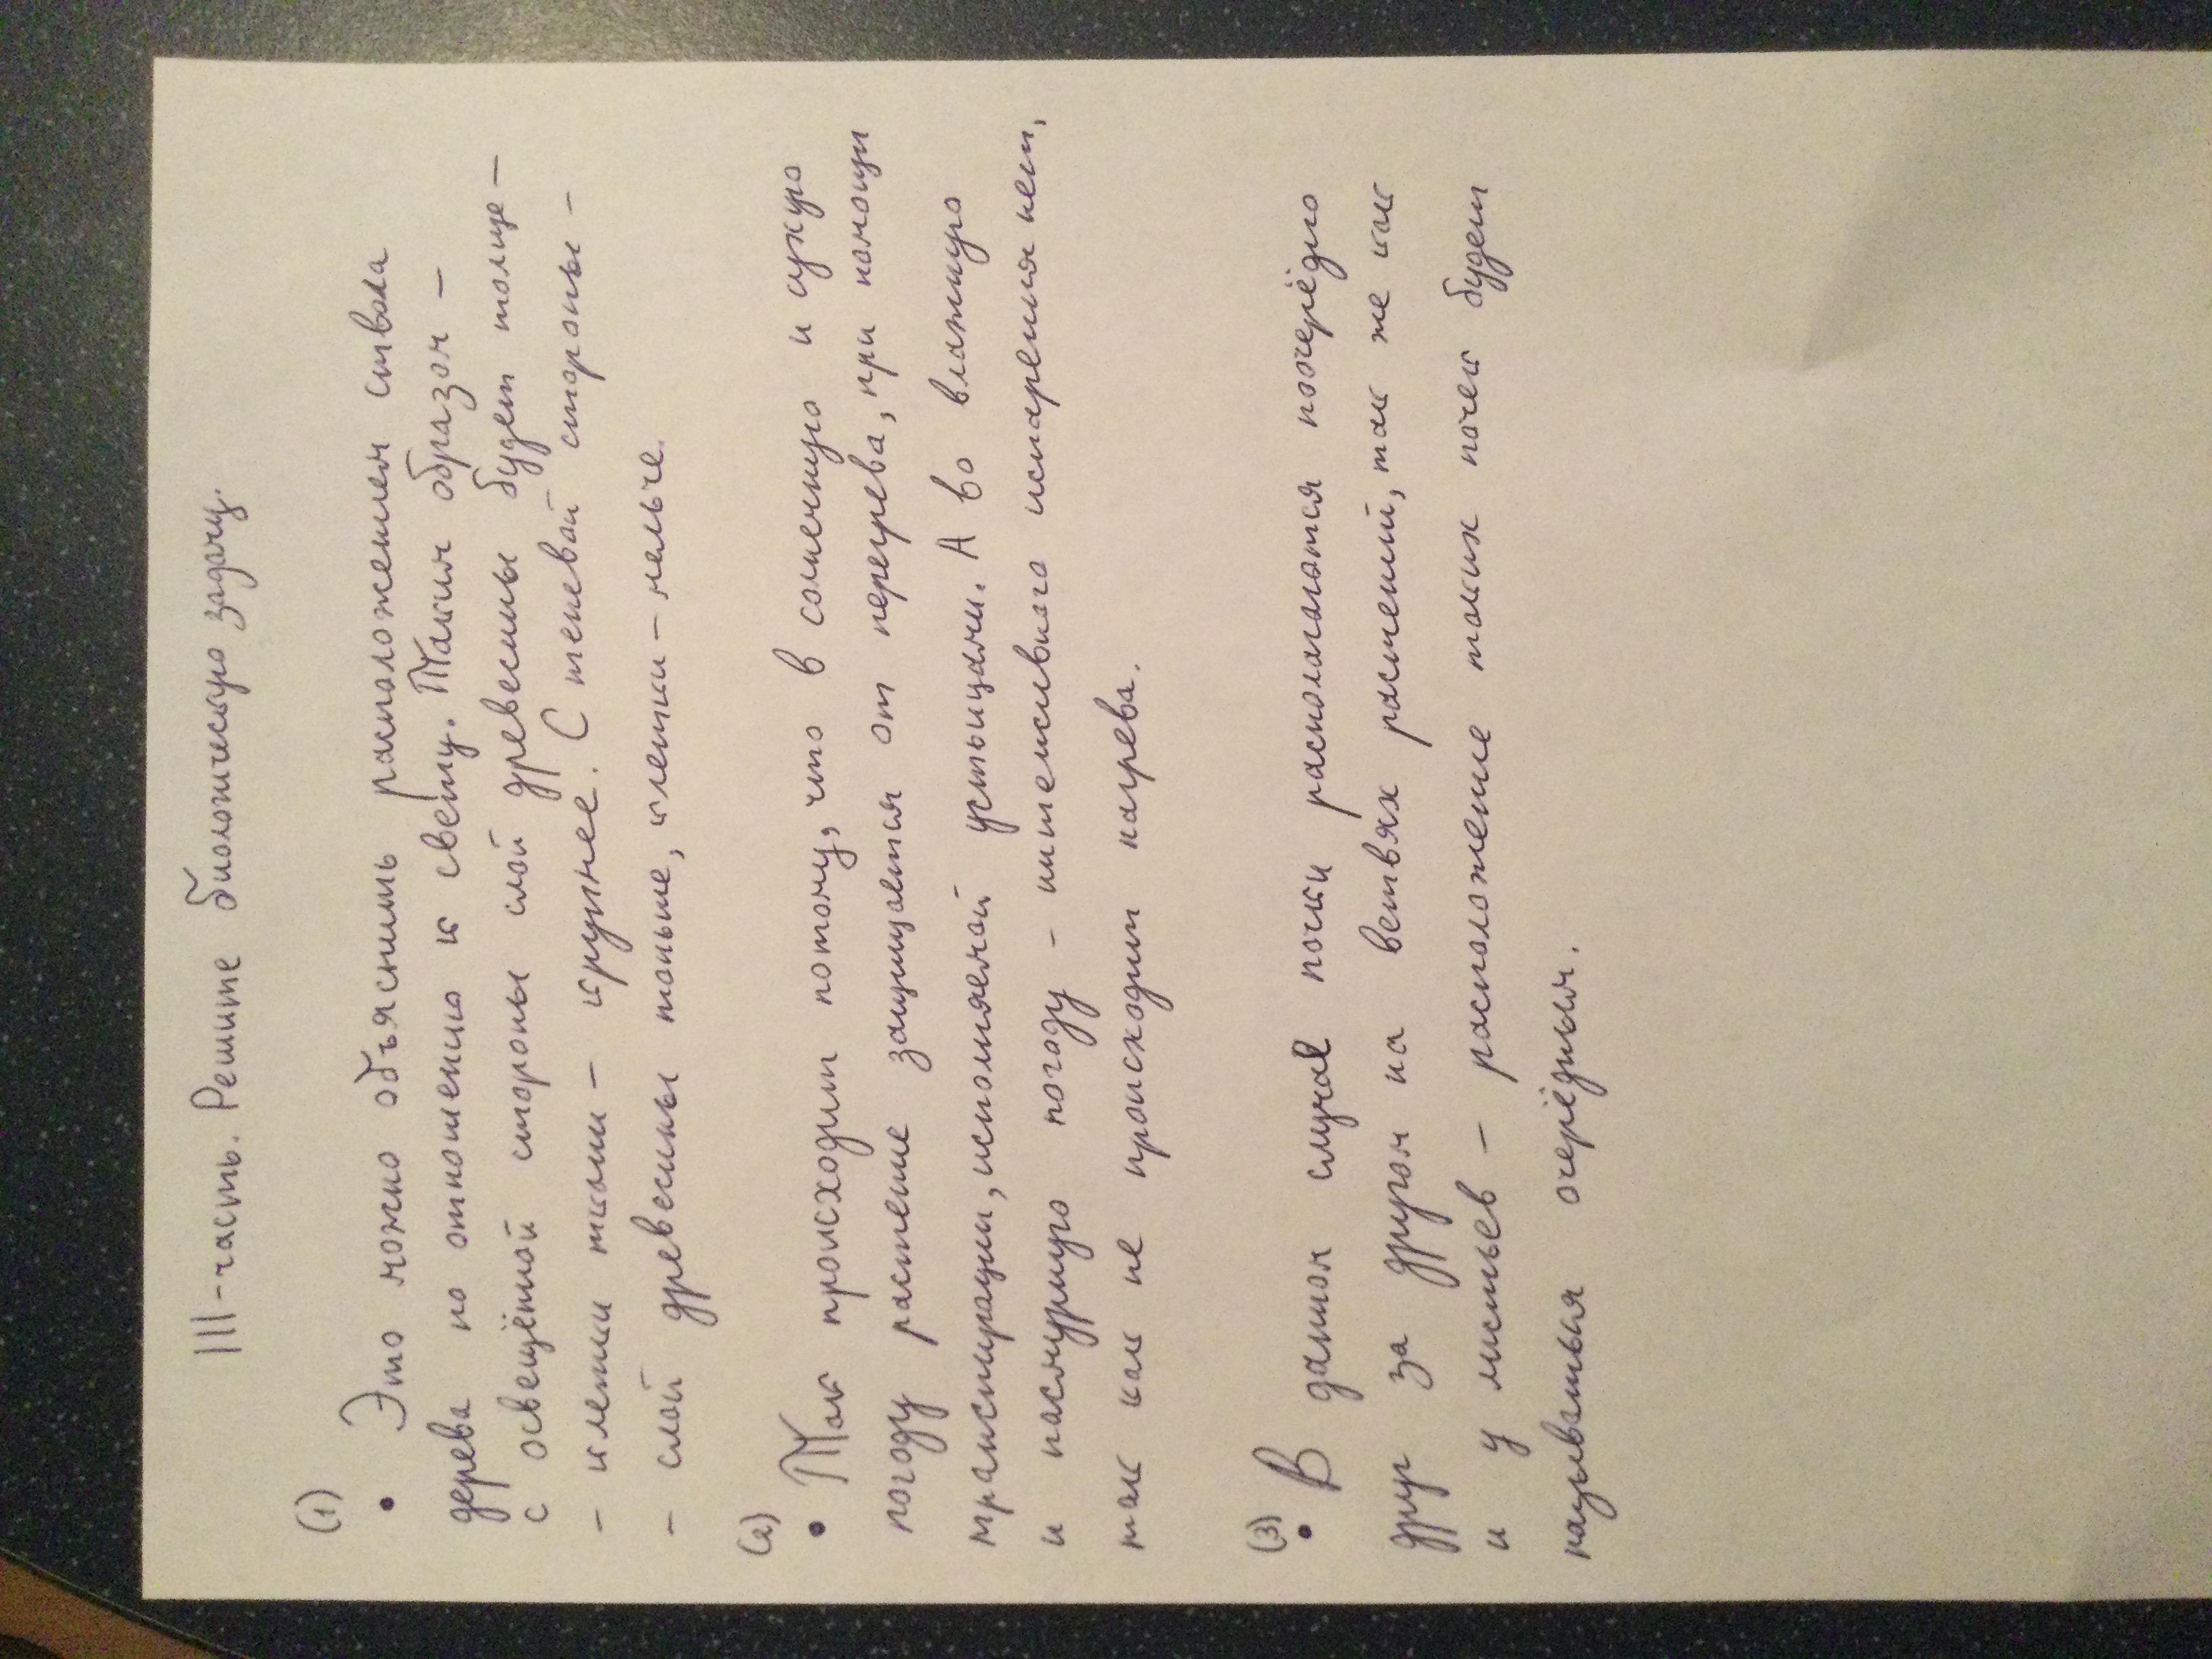 III-часть. Решите биологическую задачу.
(1)
• Это можно объяснить расположением ствола
дерева по отношению к свету. Таким образом –
с освещённой стороны слой древесины будет толще –
– клетки ткани – крупнее. С теневой стороны –
– слой древесины тоньше, клетки – мельче.
(2)
• Так происходит потому, что в солнечную и сухую
погоду растение защищается от перегрева, при помощи
транспирации, исполняемой устьицами. А во влажную
и пасмурную погоду – интенсивного испарения нет,
так как не происходит нагрева.
(3)
• В данном случае почки располагаются поочерёдно
друг за другом на ветвях растений, так же как
и у листьев – расположение таких почек будет
называться очерёдным.